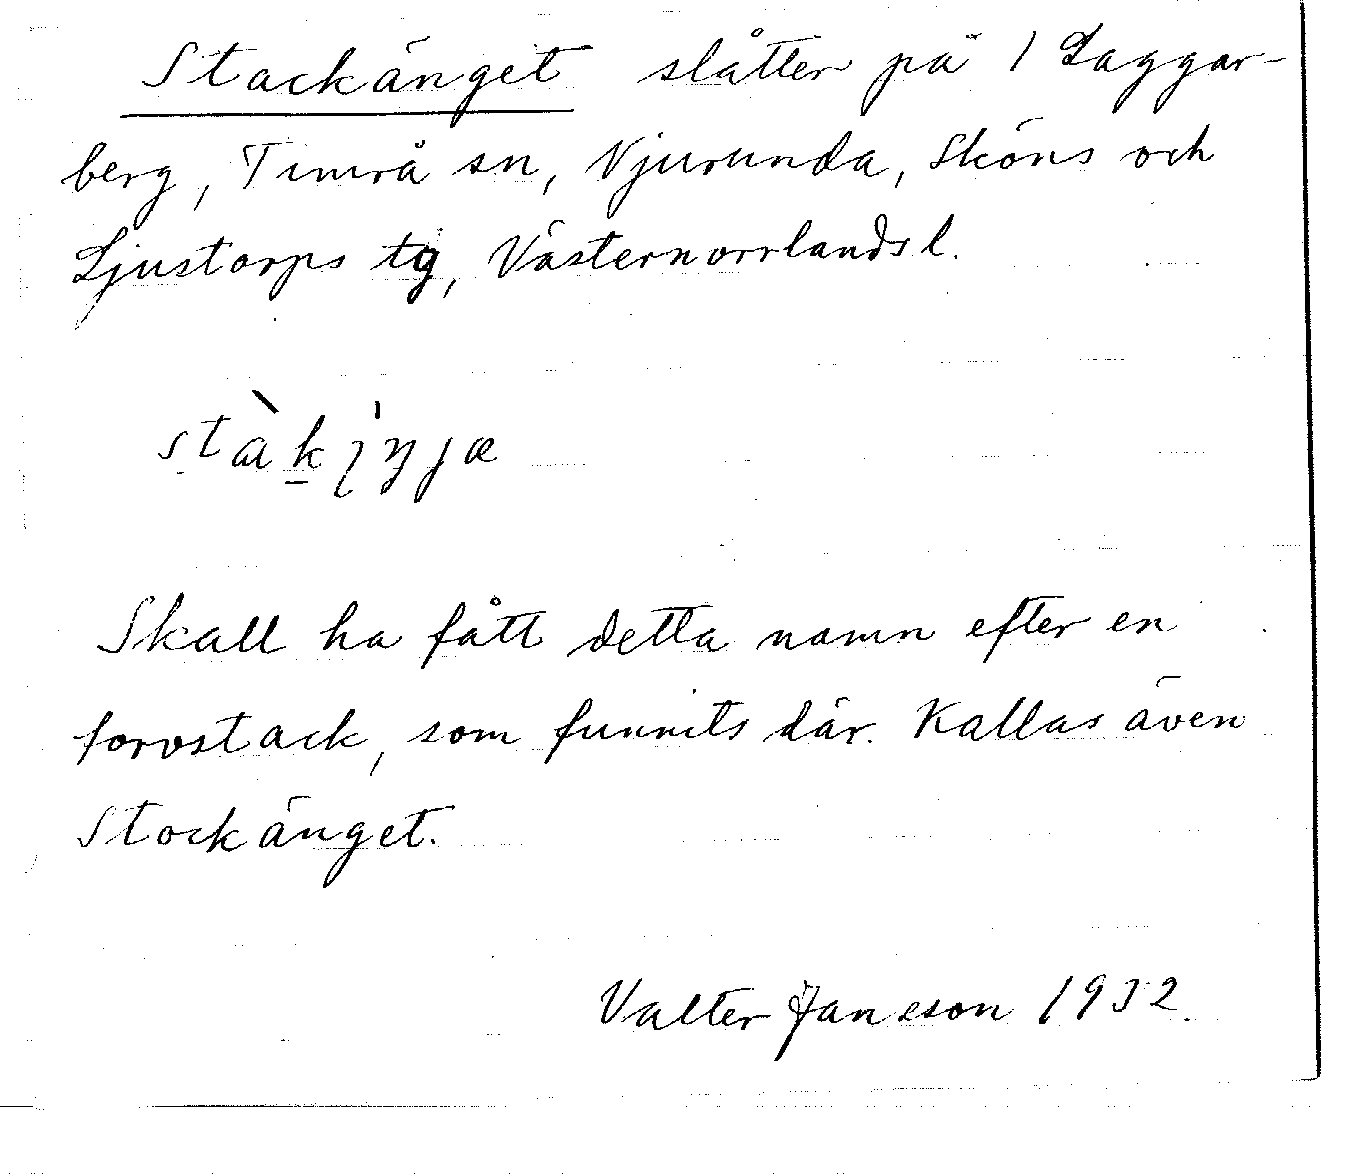 Stackänget slåtter på 1 Laggar-
berg, Timrå sn, Njurunda, Sköns och
Ljustorps tg, Västernorrlands l.
Skall ha fått detta namn efter en
torvstack, som funnits där. Kallas även
Stockänget.
Valter Janeson 1932.